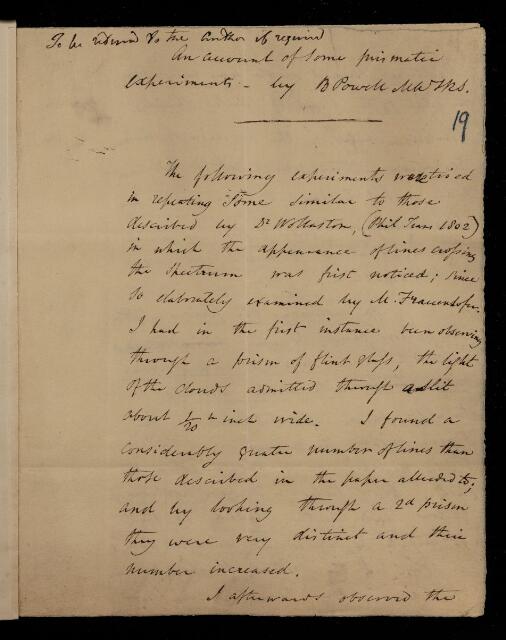 To be returned to the author if required
An account of some prismatic
experiments - by B Powell M.A. F.R.S.
19
The following experiments
in repeating some similar to those
described by Dr Wollaston, (Phil Trans 1802)
in which the appearance of lines crossing
the spectrum was first noticed; since
so elaborately examined by M. Frauenhofer.
I had in the first instance been observing
through a prism of flint glass, the light
of the clouds admitted through a slit
about 1/20 inch wide. I found a
considerably greater number of lines than
those described in the paper alluded to;
and by looking through a 2d prism
they were very distinct and their
number increased.
I afterwards observed the